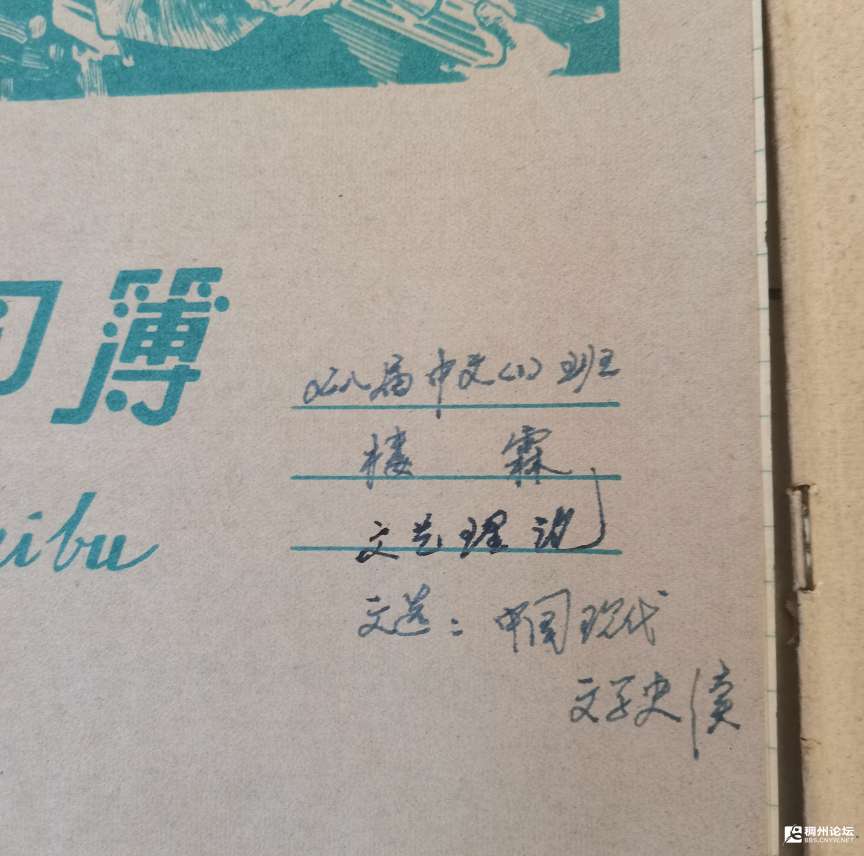 习簿
xibu
八届中文(1)班
楼霖
文艺理论
文选：中国现代
文学史续
稠州论坛
BBS.CNYW.NET